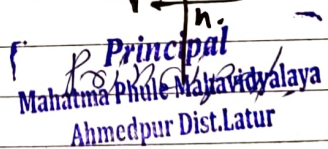 h.
Principal
Mahatma Phule Mahavidyalaya
Ahmedpur Dist.Latur